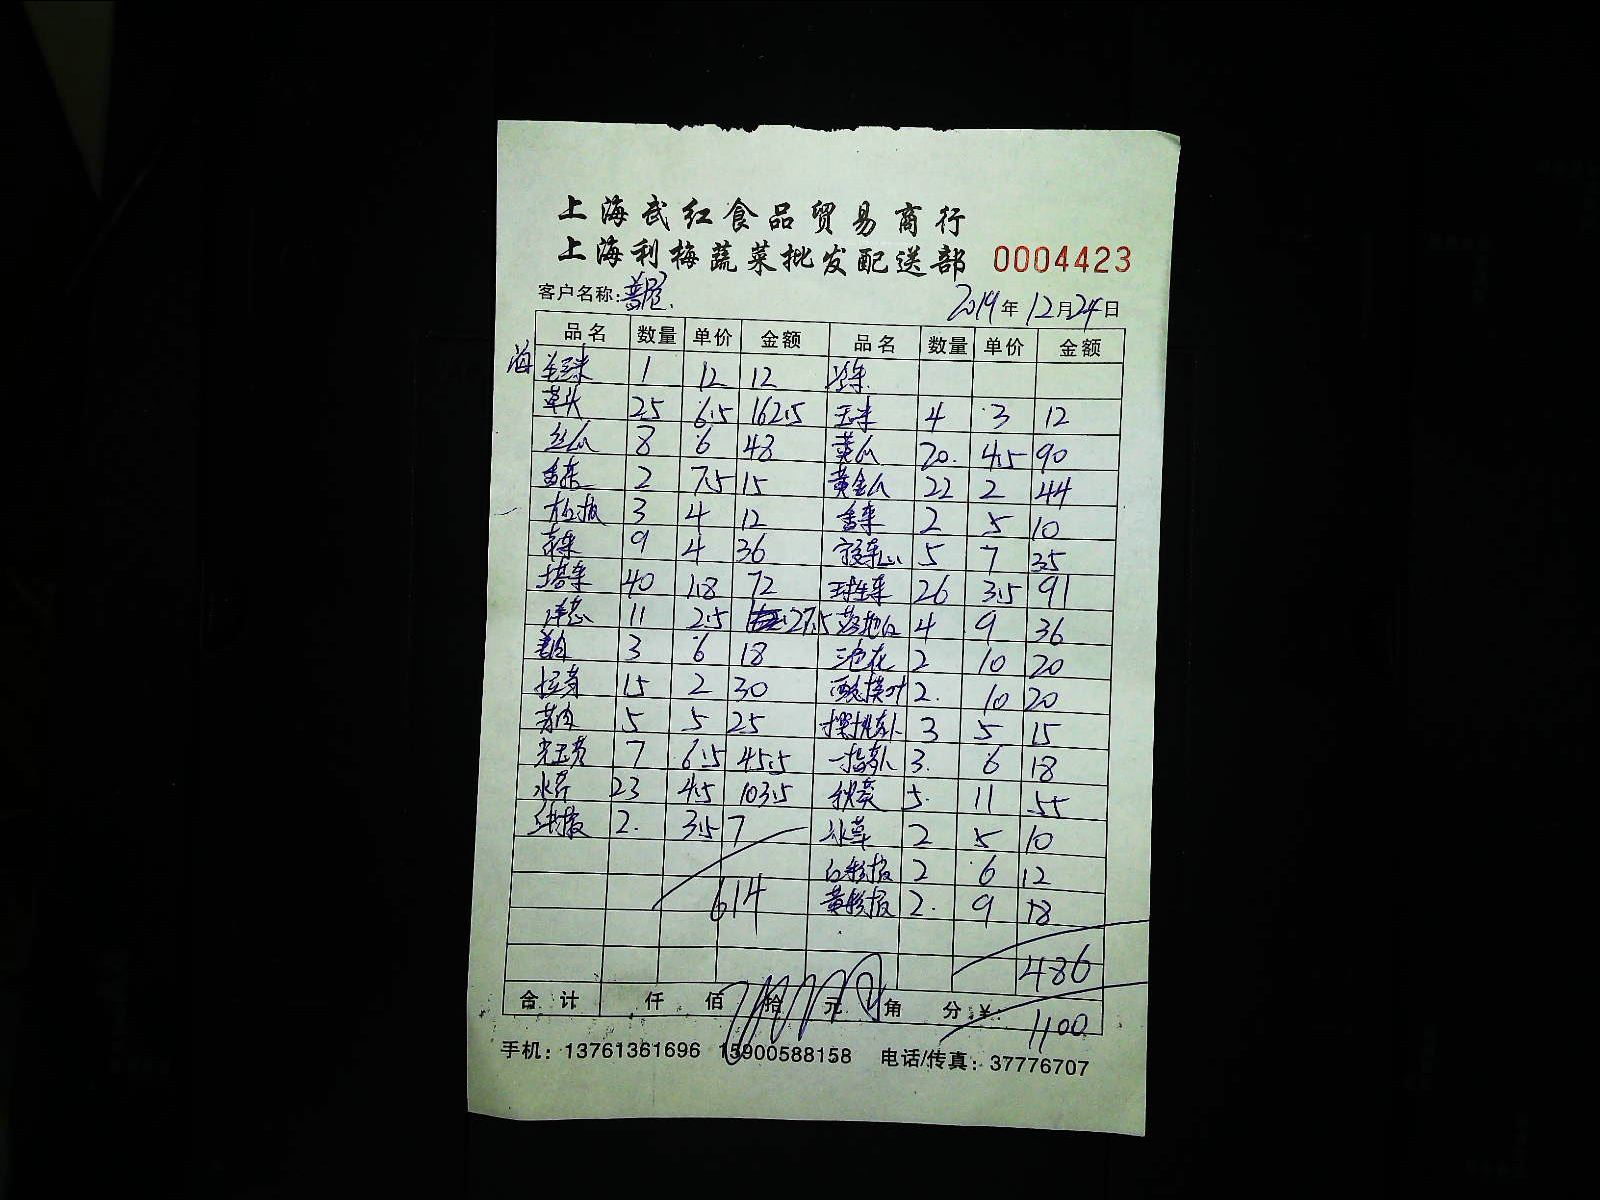 上海武红食品贸易商行
上海利梅蔬菜批发配送部 0004423
客户名称: 2019年12月24日
品名 数量 单价 金额 品名 数量 单价 金额
1 12 12
草头 25 6.5 162.5 玉米 4 3 12
丝瓜 8 6 48 黄瓜 20. 4.5 90
2 7.5 15 黄金瓜 22 2 44
3 4 12 2 5 10
9 4 36 5 7 35
塔菜 40 1.8 72 球生菜 26 3.5 91
洋葱 11 2.5 27.5 4 9 36
3 6 18 2 10 20
15 2 30 2. 10 20
5 5 25 樱桃萝卜 3 5 15
7 6.5 45.5 3. 6 18
水芹 23 4.5 103.5 秋葵 5. 11 55
2. 3.5 7 冰草 2 5 10
2 6 12
614 2. 9 18
486
合计 仟 佰 拾 元 角 分 ¥ 1100
手机：13761361696 15900588158 电话/传真：37776707